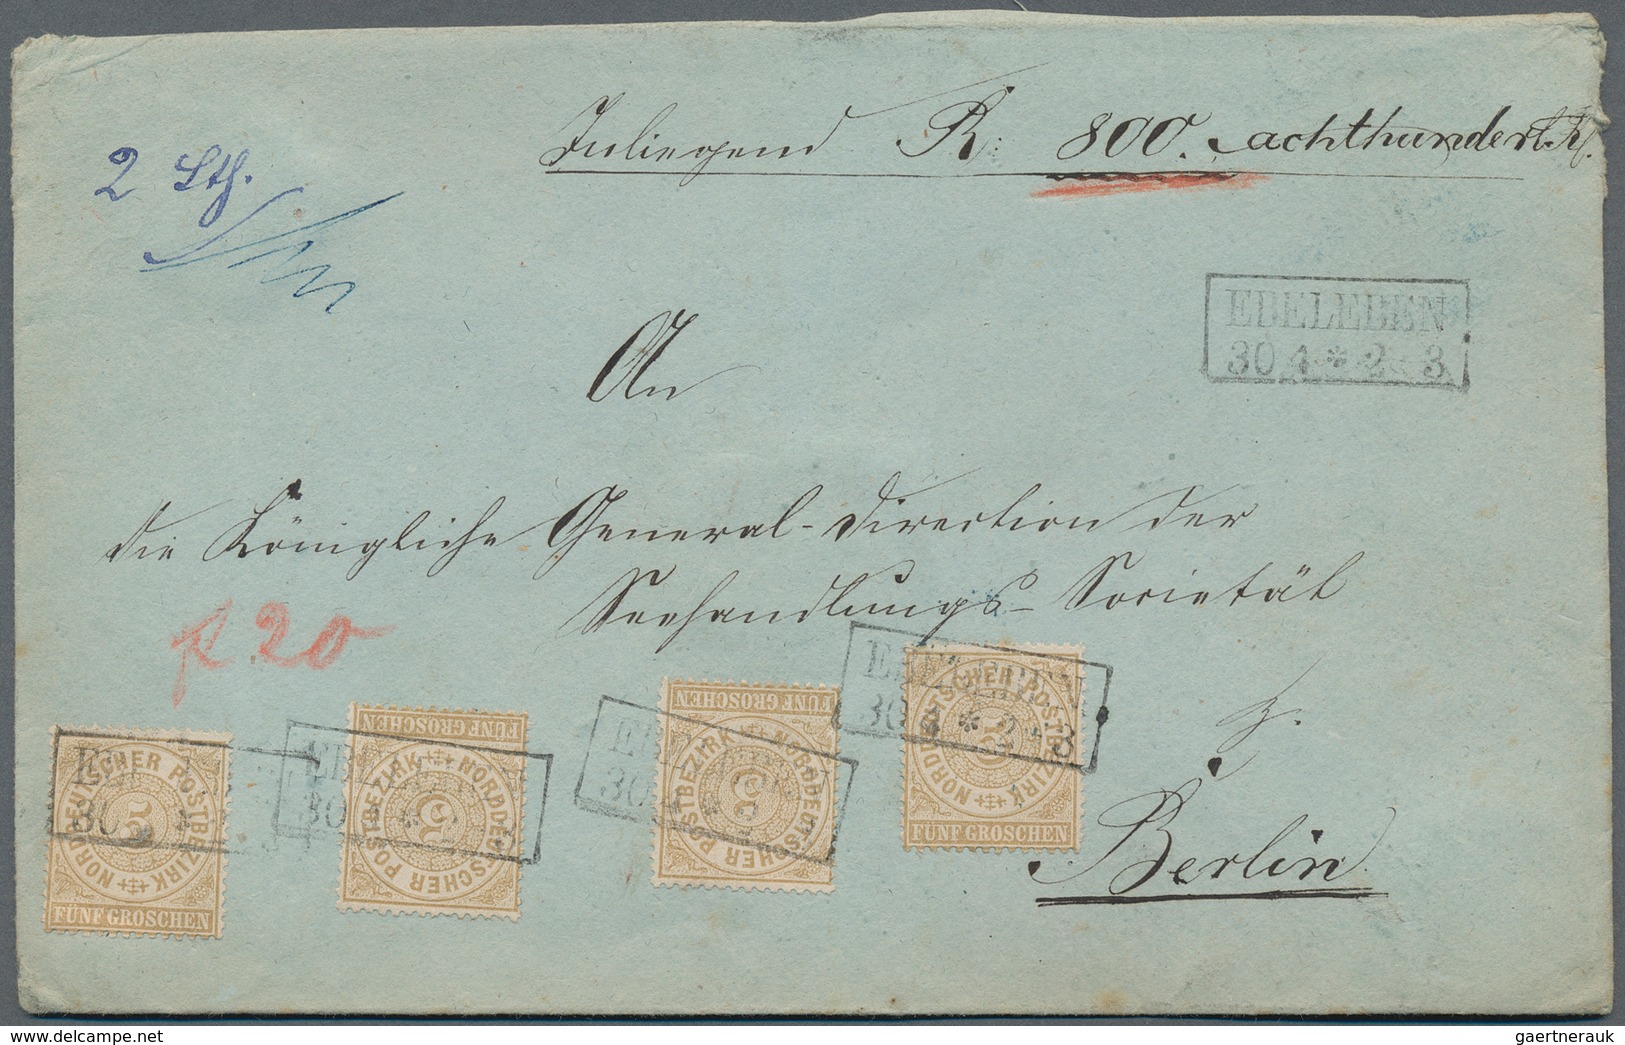 Inliegend R: 800. achthundert R.
2 Lth.
EBELEBEN
30 4 * 2-3
An
die Königliche General-Direction der
Seehandlungs-Societät
f 20
z.
Berlin
NORDDEUTSCHER POSTBEZIRK
5
FÜNF GROSCHEN
EBELEBEN
30 4 *
NORDDEUTSCHER POSTBEZIRK
5
FÜNF GROSCHEN
EBELEBEN
30 4 * 2-3
NORDDEUTSCHER POSTBEZIRK
5
FÜNF GROSCHEN
EBELEBEN
30 4 * 2-3
NORDDEUTSCHER POSTBEZIRK
5
FÜNF GROSCHEN
EBELEBEN
30 4 * 2-3
gaertnerauk